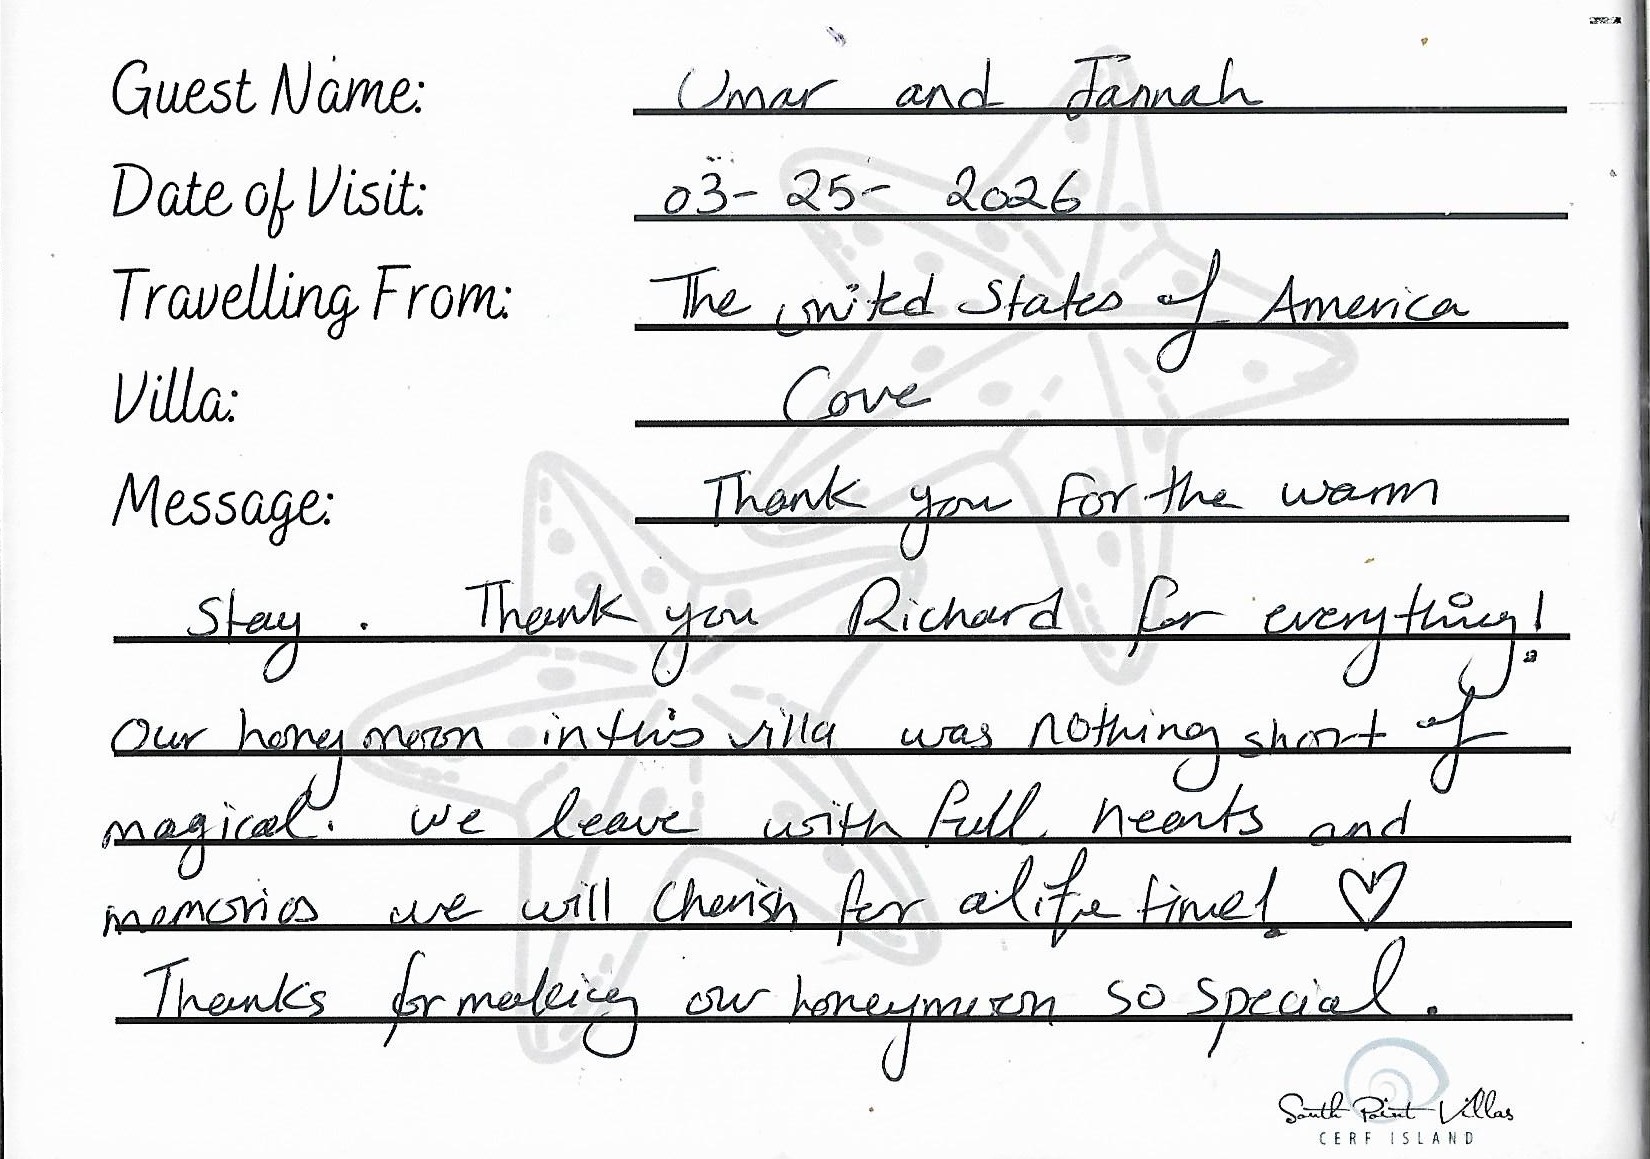 Guest Name: Umar and Jannah
Date of Visit: 03-25-2026
Travelling From: The United States of America
Villa: Cove
Message: Thank you For the warm
Stay. Thank you Richard for everything!
Our honeymoon in this villa was nothing short of
magical. We leave with full hearts and
memories we will cherish for a life time! ♡
Thanks for making our honeymoon so special.
South Point Villas
CERF ISLAND